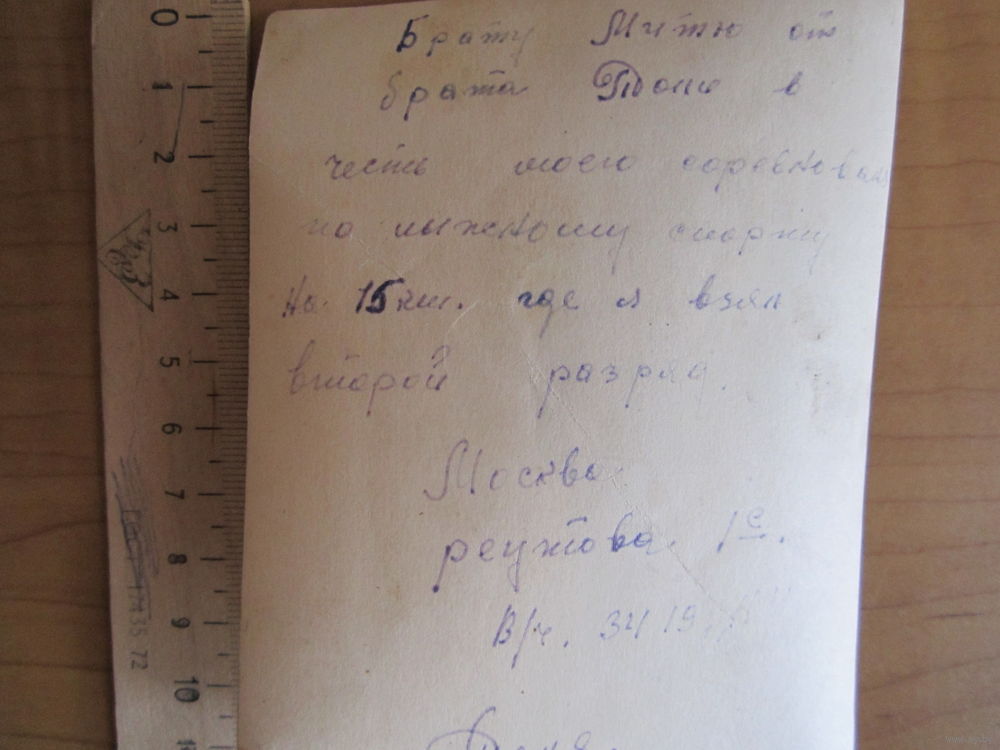 Брату Митю от
брата Толи в
честь моего соревнован
по лыжному спорту
на 15 км. где я взял
второй разряд.
Москва
реутова. 1е.
В/ч. 3419
0
1
2
3
4
5
6
7
8
9
10
ГОСТ 17435 72